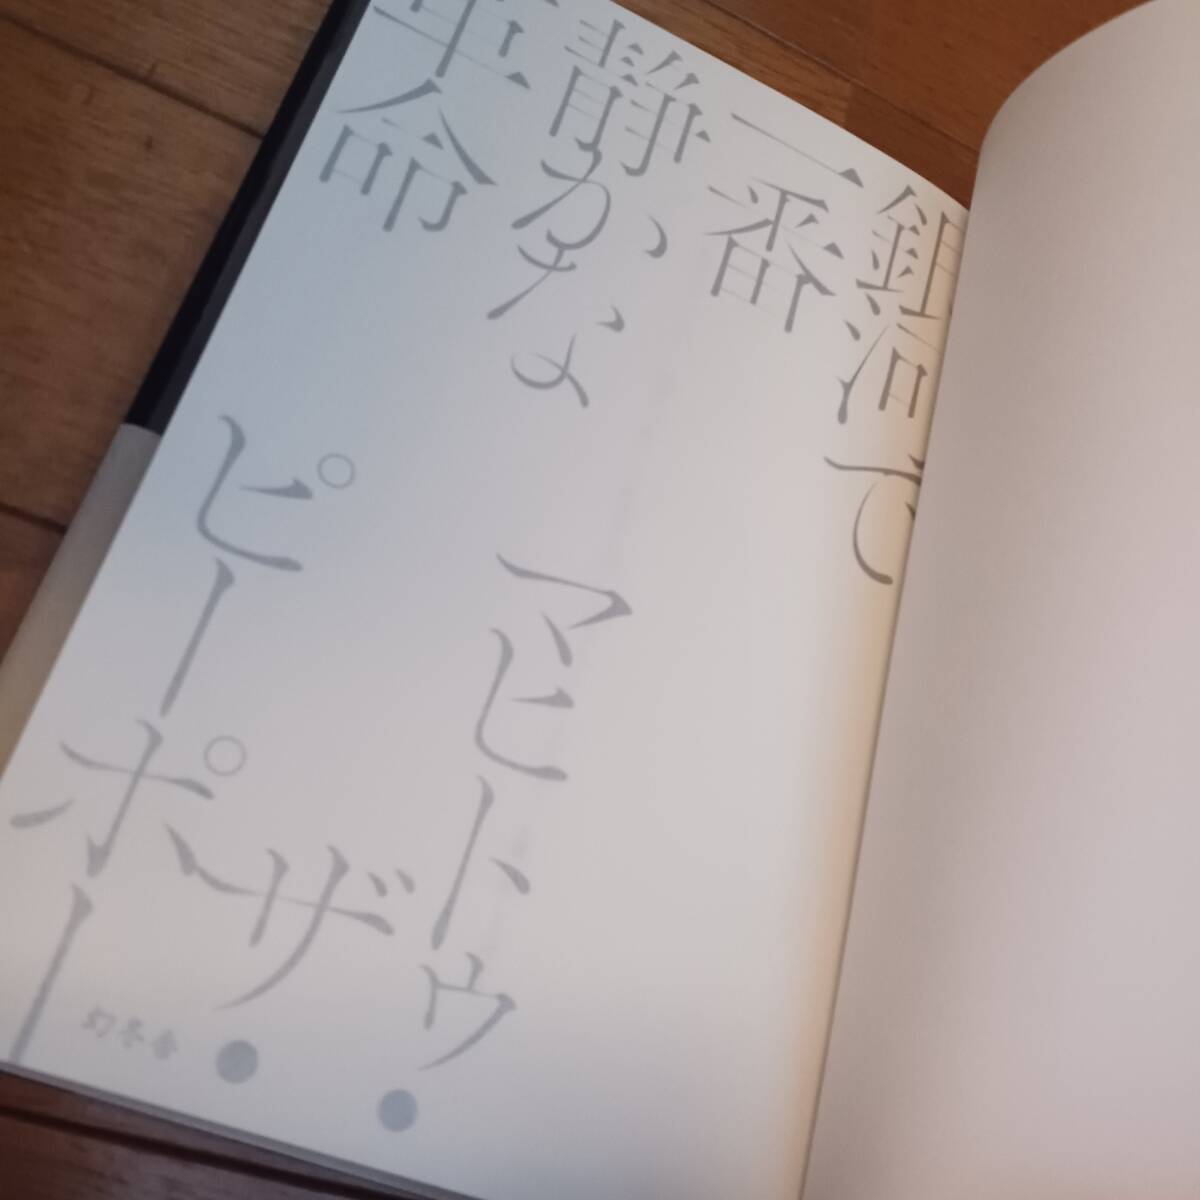 銀河で
一番
静かな
革命
マヒトゥ・
ザ・
ピーポー
幻冬舎